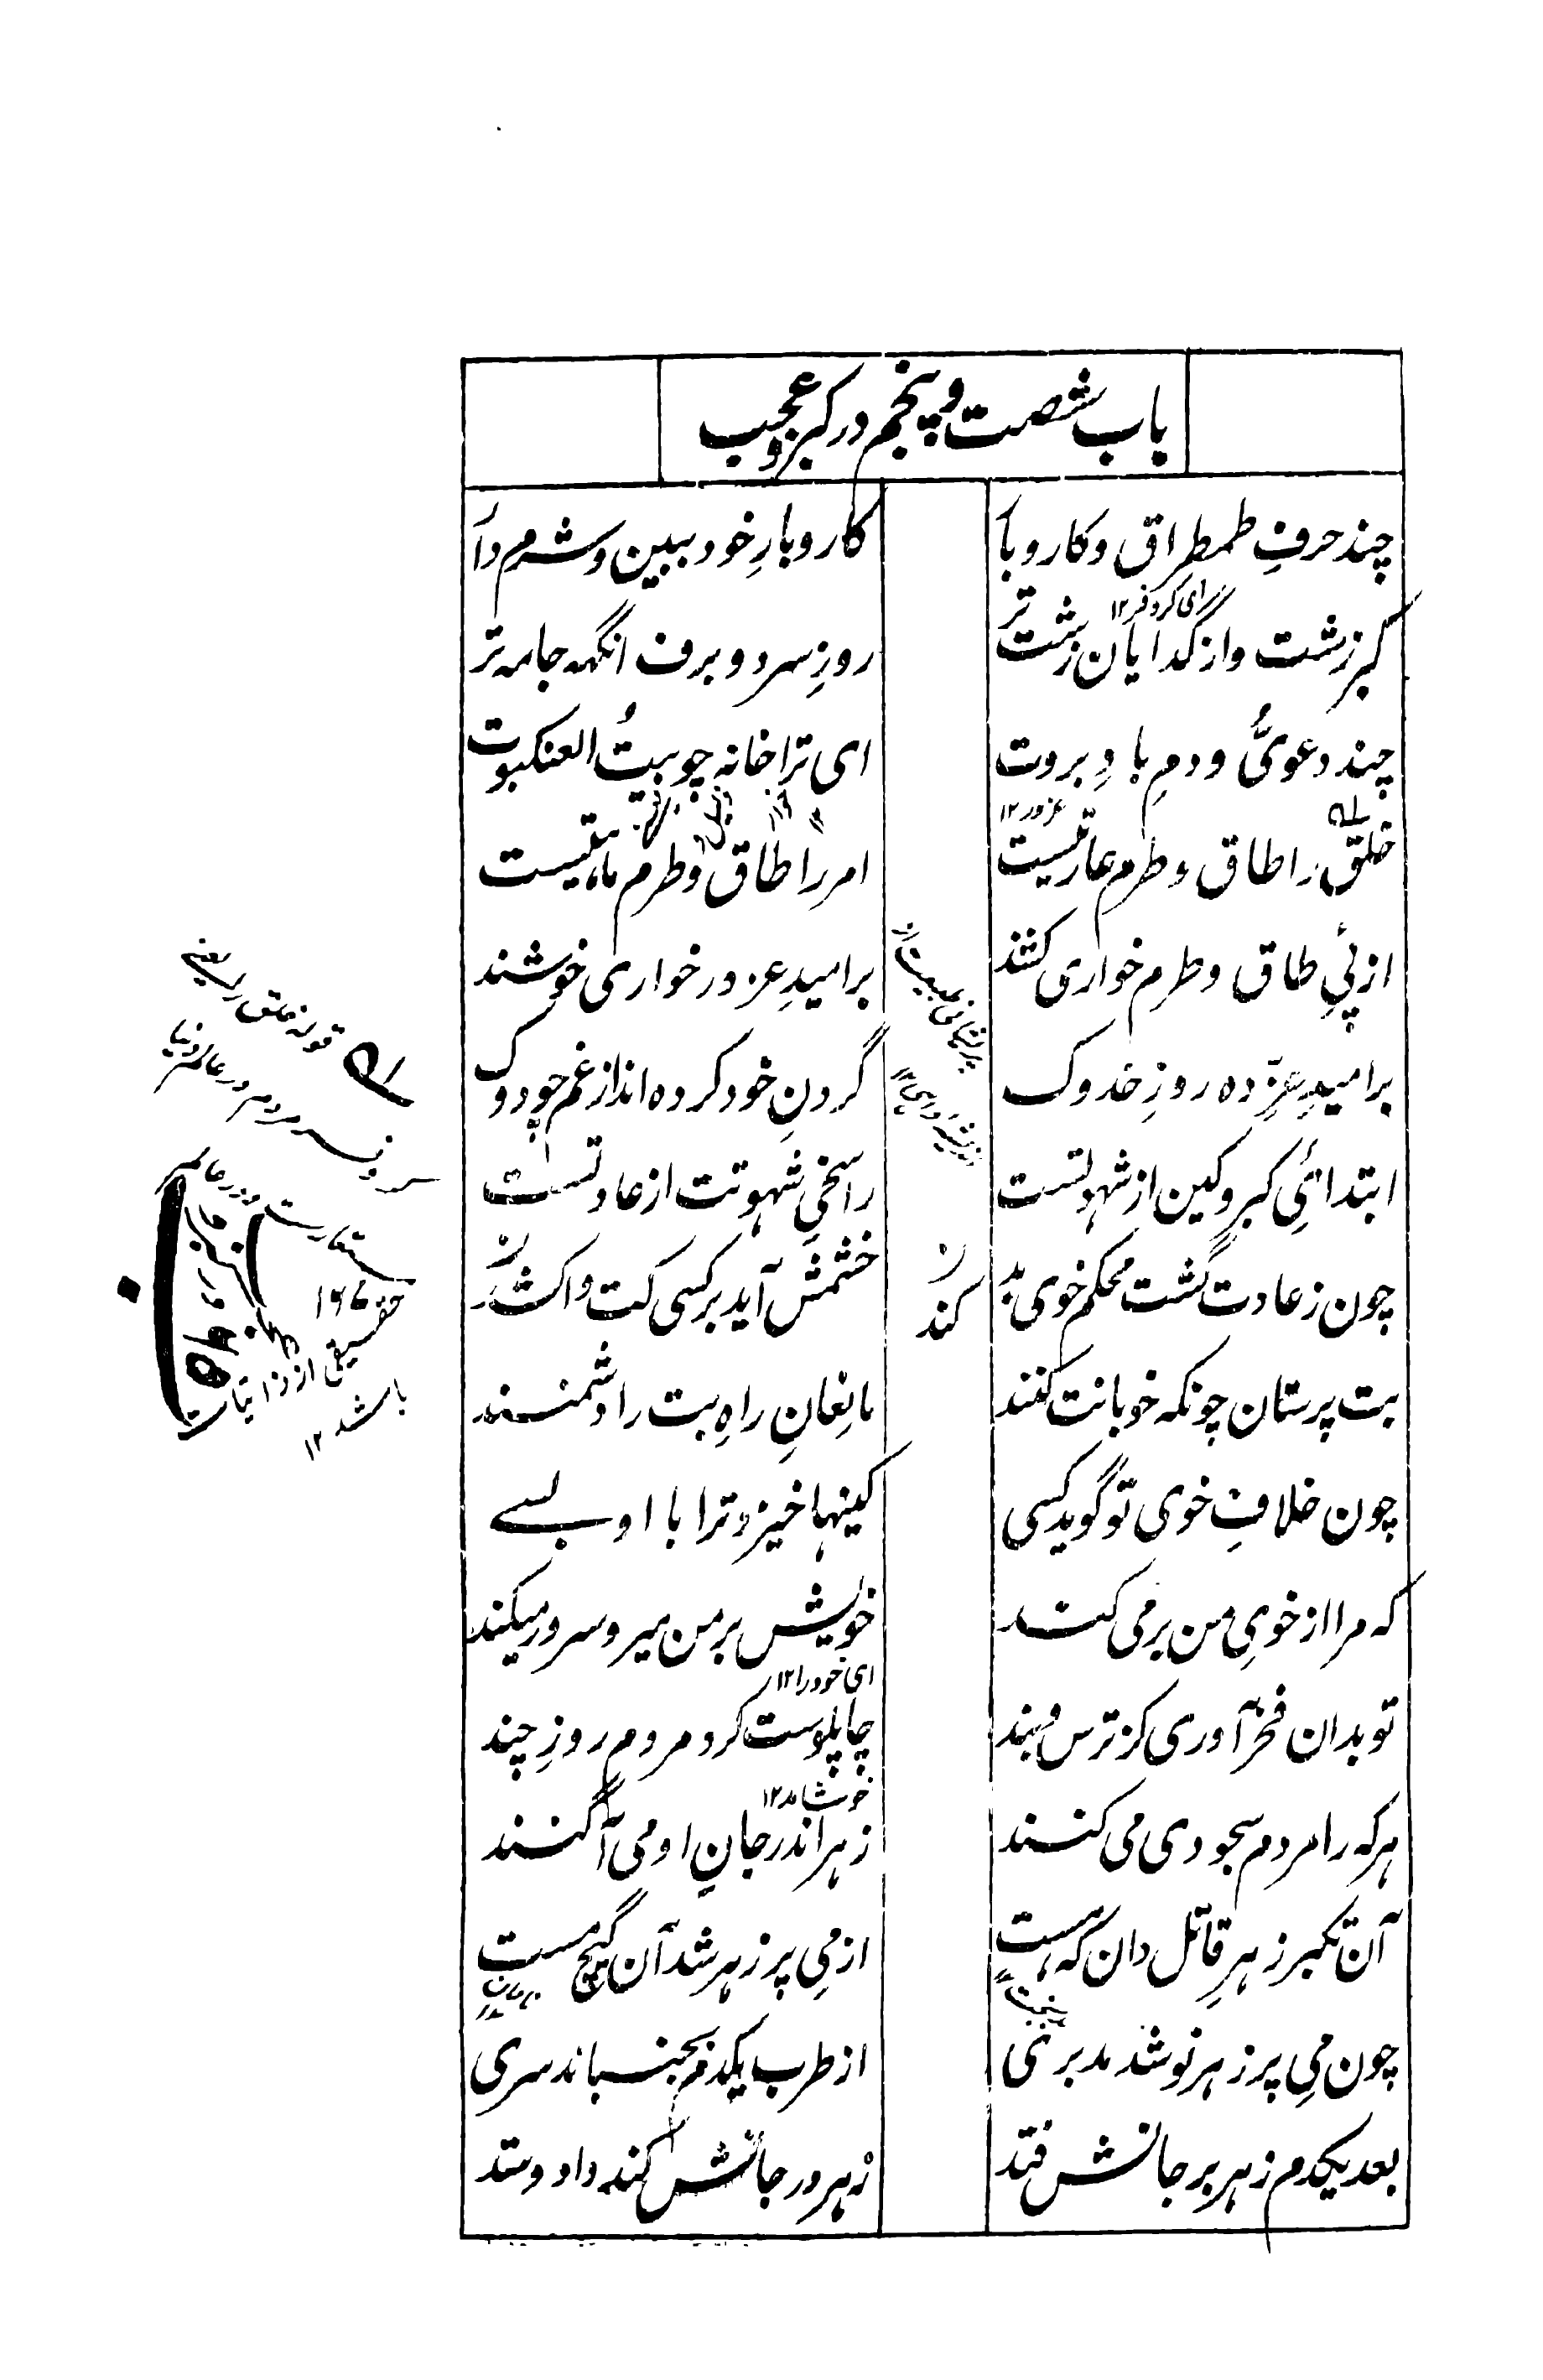 باب شصت و پنجم در کبر و عجب
چند حرفِ طمطراق و کاروبار کاروبارِ خود ببین و شرم دار
ای کروفر ۱۲
کبر زشت و از گدایان زشت تر روزِ سرد و برف انگهه جامه تر
چند دعویُّ و دمِ بادِ بروت ای ترا خانه چو بیتُ العنکبوت
غرور ۱۲
خلق را طاق و طرم عاریتیست امر را طاق و طرم ماهیتیست
از پیِ طاق و طرم خواری کشند بر امیدِ عز در خواری خوشند
بر امیدِ عزِّ ده روزِ خدوک گردنِ خود کرده اند از غم چو دوک
ابتدائیِ کبر و کین از شهوتست راسخیِ شهوتت از عادتست
چون ز عادت گشت محکم خوی بد خشمش آید بر کسی کت واکشد
ن
کند
بت پرستان چونکه خو با بت کنند مانعانِ راهِ بت را دشمنند
چون خلافِ خوی تو گوید کسی کینها خیزد ترا با او بسے
که مرا از خویِ من بر می کند خویش بر من میر و سرور میکند
ای خود را ۱۲
تو بدان فخر آوری کز ترس و بند چاپلوست کرد مردم روزِ چند
خوشامد ۱۲
هر که را مردم سجودی می کنند زهر اندر جانِ او می آگنند
آن تکبر زهرِ قاتل دان که هست از میِ پر زهر شد آن گیج مست
چون میِ پر زهر نوشد مدبری از طرب یکدم بجنباند سری
بعد یکدم زهر بر جانش فتد زهر در جانش کند داد و ستد
قوله خلق را یعنے
مردم در عالم دنیا
حقیقی از ذاتیات
باشد ۱۲